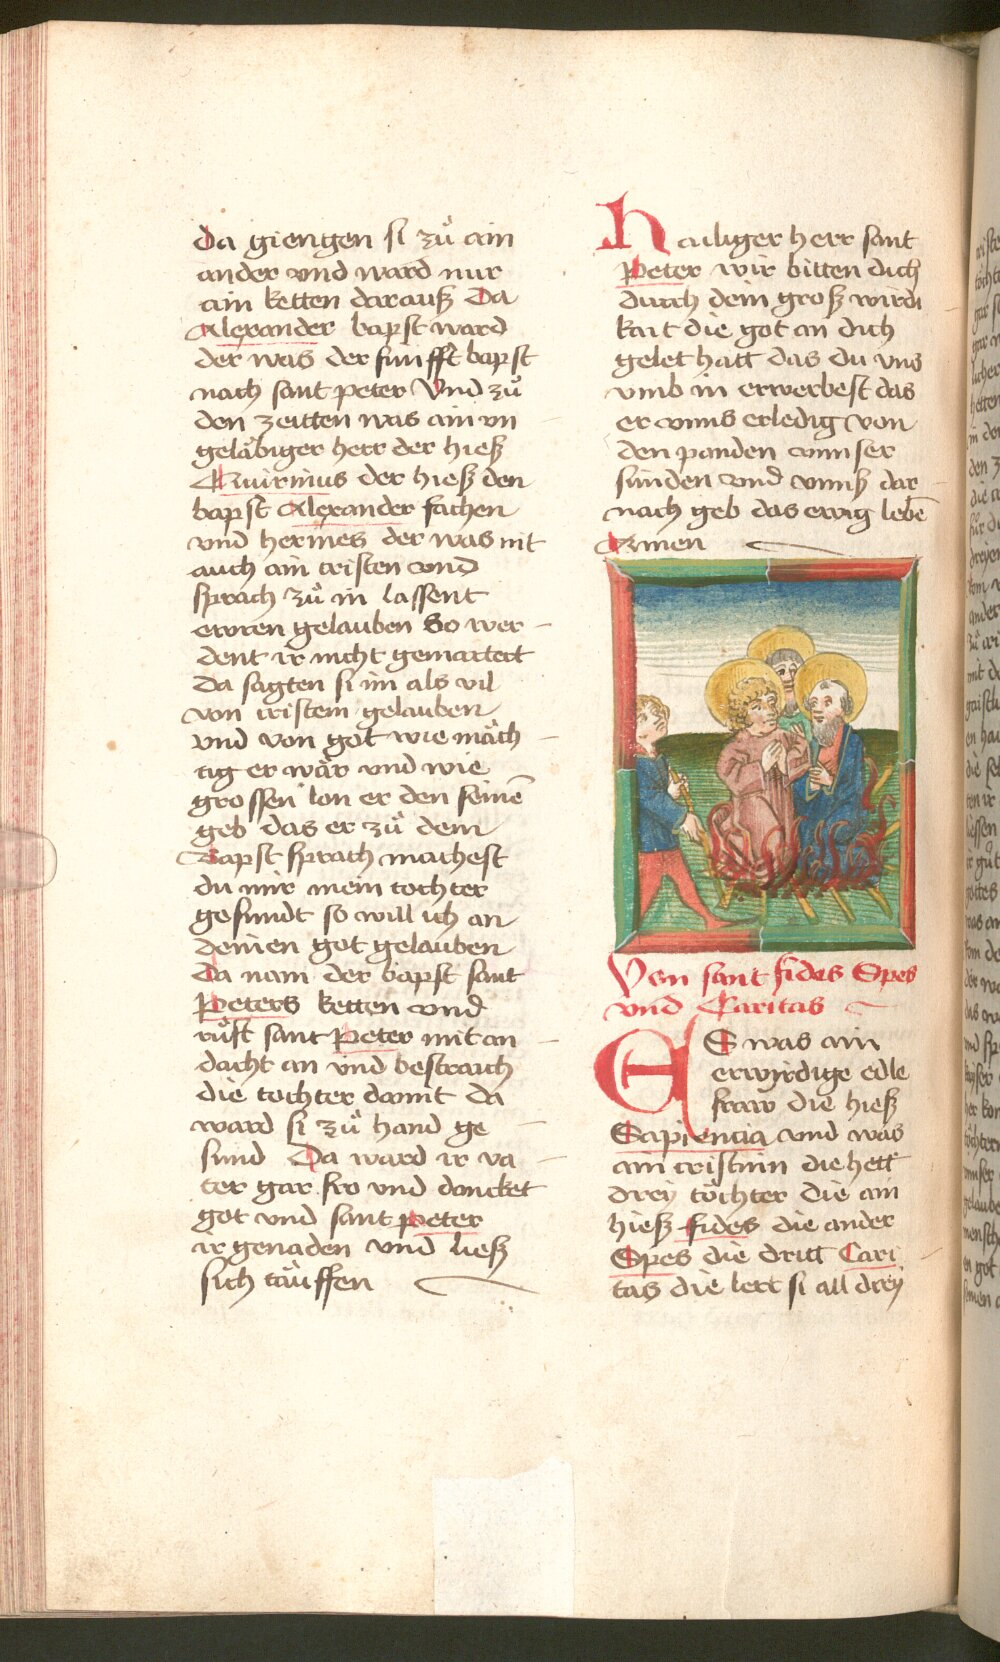 Da giengen si zů ain
ander vnd ward nur
ain ketten darauß Da
Alexander bapst ward
der was der funfft bapst
nach sant peter Vnd zů
den zeitten was ain vn
geläbiger herr der hieß
Quirinus der hieß den
bapst Alexander fachen
vnd hermes der was nit
auch ain cristen vnd
sprach zů in lassent
ewren gelauben So wer
dent ir nicht gemartert
Da sagten si im als vil
von cristem gelauben
vnd von got wie mäch
tig er wär vnd wie
grossen lon er den seinē
geb das er zů dem
Bapst sprach machest
du mir mein tochter
gesundt so will ich an
deinen got gelauben
Da nam der bapst sant
Peters ketten vnd
růft sant Peter mit an
dacht an vnd bestraich
die tochter damit Da
ward si zů hand ge
sund Da ward ir va
ter gar fro vnd dancket
got vnd sant peter
ir genaden vnd ließ
sich tauffen
Hailiger herr sant
Peter wir bitten dich
durch dein groß wirdi
kait die got an dich
gelet hatt das du vns
vmb in erwerbest das
er vnns erledig von
den panden vnnser
sünden vnd vnnß dar
nach geb das ewig lebē
Amen
Von sant fides Spes
vnd Caritas
ES was ain
erwyrdige edle
fraw die hieß
Sapiencia vnd was
ain cristnin die hett
drey töchter die ain
hieß fides die ander
Spes die dritt Cari
tas die lert si all drey